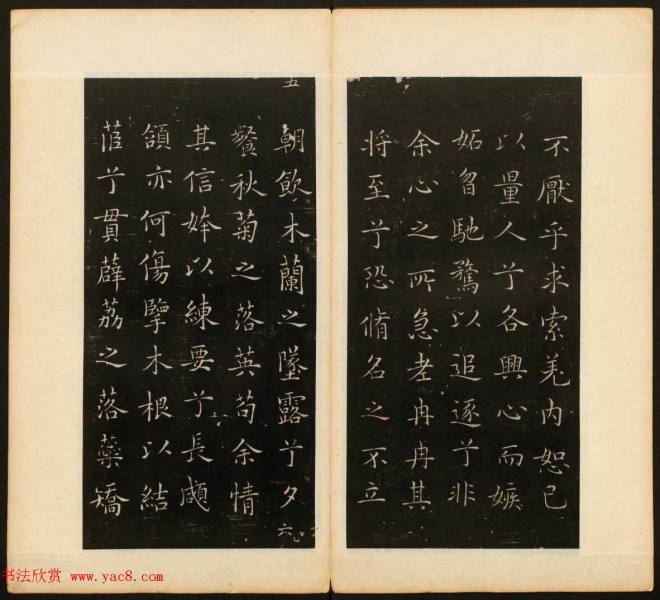 不厭乎求索羌内恕己
以量人兮各興心而嫉
妬曶馳騖以追逐兮非
余心之所急老冉冉其
将至兮恐脩名之不立
五
朝飲木蘭之墜露兮夕
六
餐秋菊之落英苟余情
其信姱以練要兮長顑
頷亦何傷擥木根以結
茝兮貫薜荔之落蘂矯
书法欣赏 www.yac8.com